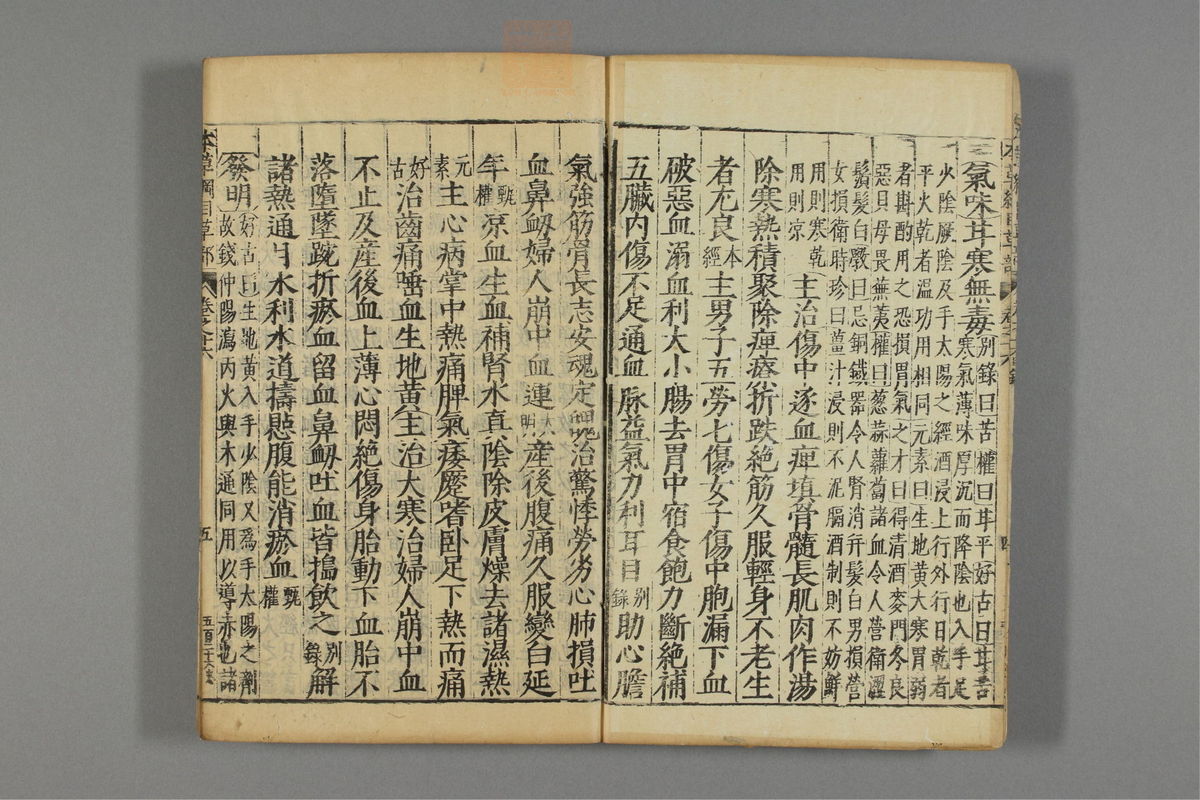 氣味甘寒無毒別錄曰苦權曰甘平好古曰甘苦寒氣薄味厚沉而降陰也入手足
火陰厥陰及手太陽之經酒浸上行外行日乾者
平火乾者溫功用相同元素曰生地黃大寒胃弱
者斟酌用之恐損胃氣之才曰得清酒麥門冬良
惡貝母畏無荑權曰葱蒜蘿蔔諸血令人營衛澀
鬚髮白斆曰忌銅鐵器令人腎消幷髮白男損營
女損衛時珍曰薑汁浸則不泥膈酒制則不妨鮮
用則寒乾
用則凉
主治傷中逐血痺填骨髓長肌肉作湯
除寒熱積聚除痺療折跌絕筋久服輕身不老生
者尤良本經主男子五勞七傷女子傷中胞漏下血
破惡血溺血利大小腸去胃中宿食飽力斷絕補
五臟內傷不足通血脉益氣力利耳目別錄助心膽
氣強筋骨長志安魂定魄治驚悸勞劣心肺損吐
血鼻衂婦人崩中血運大明產後腹痛久服變白延
年甄權凉血生血補腎水眞陰除皮膚燥去諸濕熱
元素主心病掌中熱痛脾氣痿蹷嗜卧足下熱而痛
好古治齒痛唾血生地黃主治大寒治婦人崩中血
不止及產後血上薄心悶絕傷身胎動下血胎不
落墮墜踠折瘀血留血鼻衂吐血皆擣飲之別錄解
諸熱通月水利水道擣慰腹能消瘀血甄權
發明好古曰生地黃入手少陰又爲手太陽之劑
故錢仲陽瀉丙火與木通同用以導赤也諸
本草綱目草部
卷之十六
五